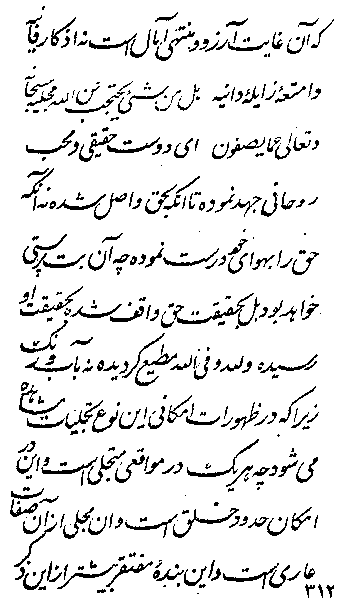 که آن غایت آرزو و منتهی آمال است نه اذکار فانیه
و امتعهٔ زایلهٔ دانیه بل من شئی یحتجب عن الله محلیه سبحانه
و تعالی عما یصفون ای دوست حقیقی و محب
روحانی جهد نموده تا آنکه بحق واصل شده نه آنکه
حق را بهوای خود درست نموده چه آن بت پرستی
خواهد بود بل بحقیقت حق واقف شده بحقیقت او
رسیده و لله و فی الله مطیع گردیده نه بآب و رنگ
زیرا که در ظهورات امکانی این نوع تجلیات مشاهده
می شود چه هر یک در مواقعی متجلی است و این در
امکان حدود خلق است و ان مجلی از آن صفات
عاری است و این بندهٔ مفتقر بیشتر از این ذکر
۳۱۲